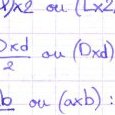 )x2 ou (Lx2
Dxd/2 ou (Dxd)
b ou (axb) :